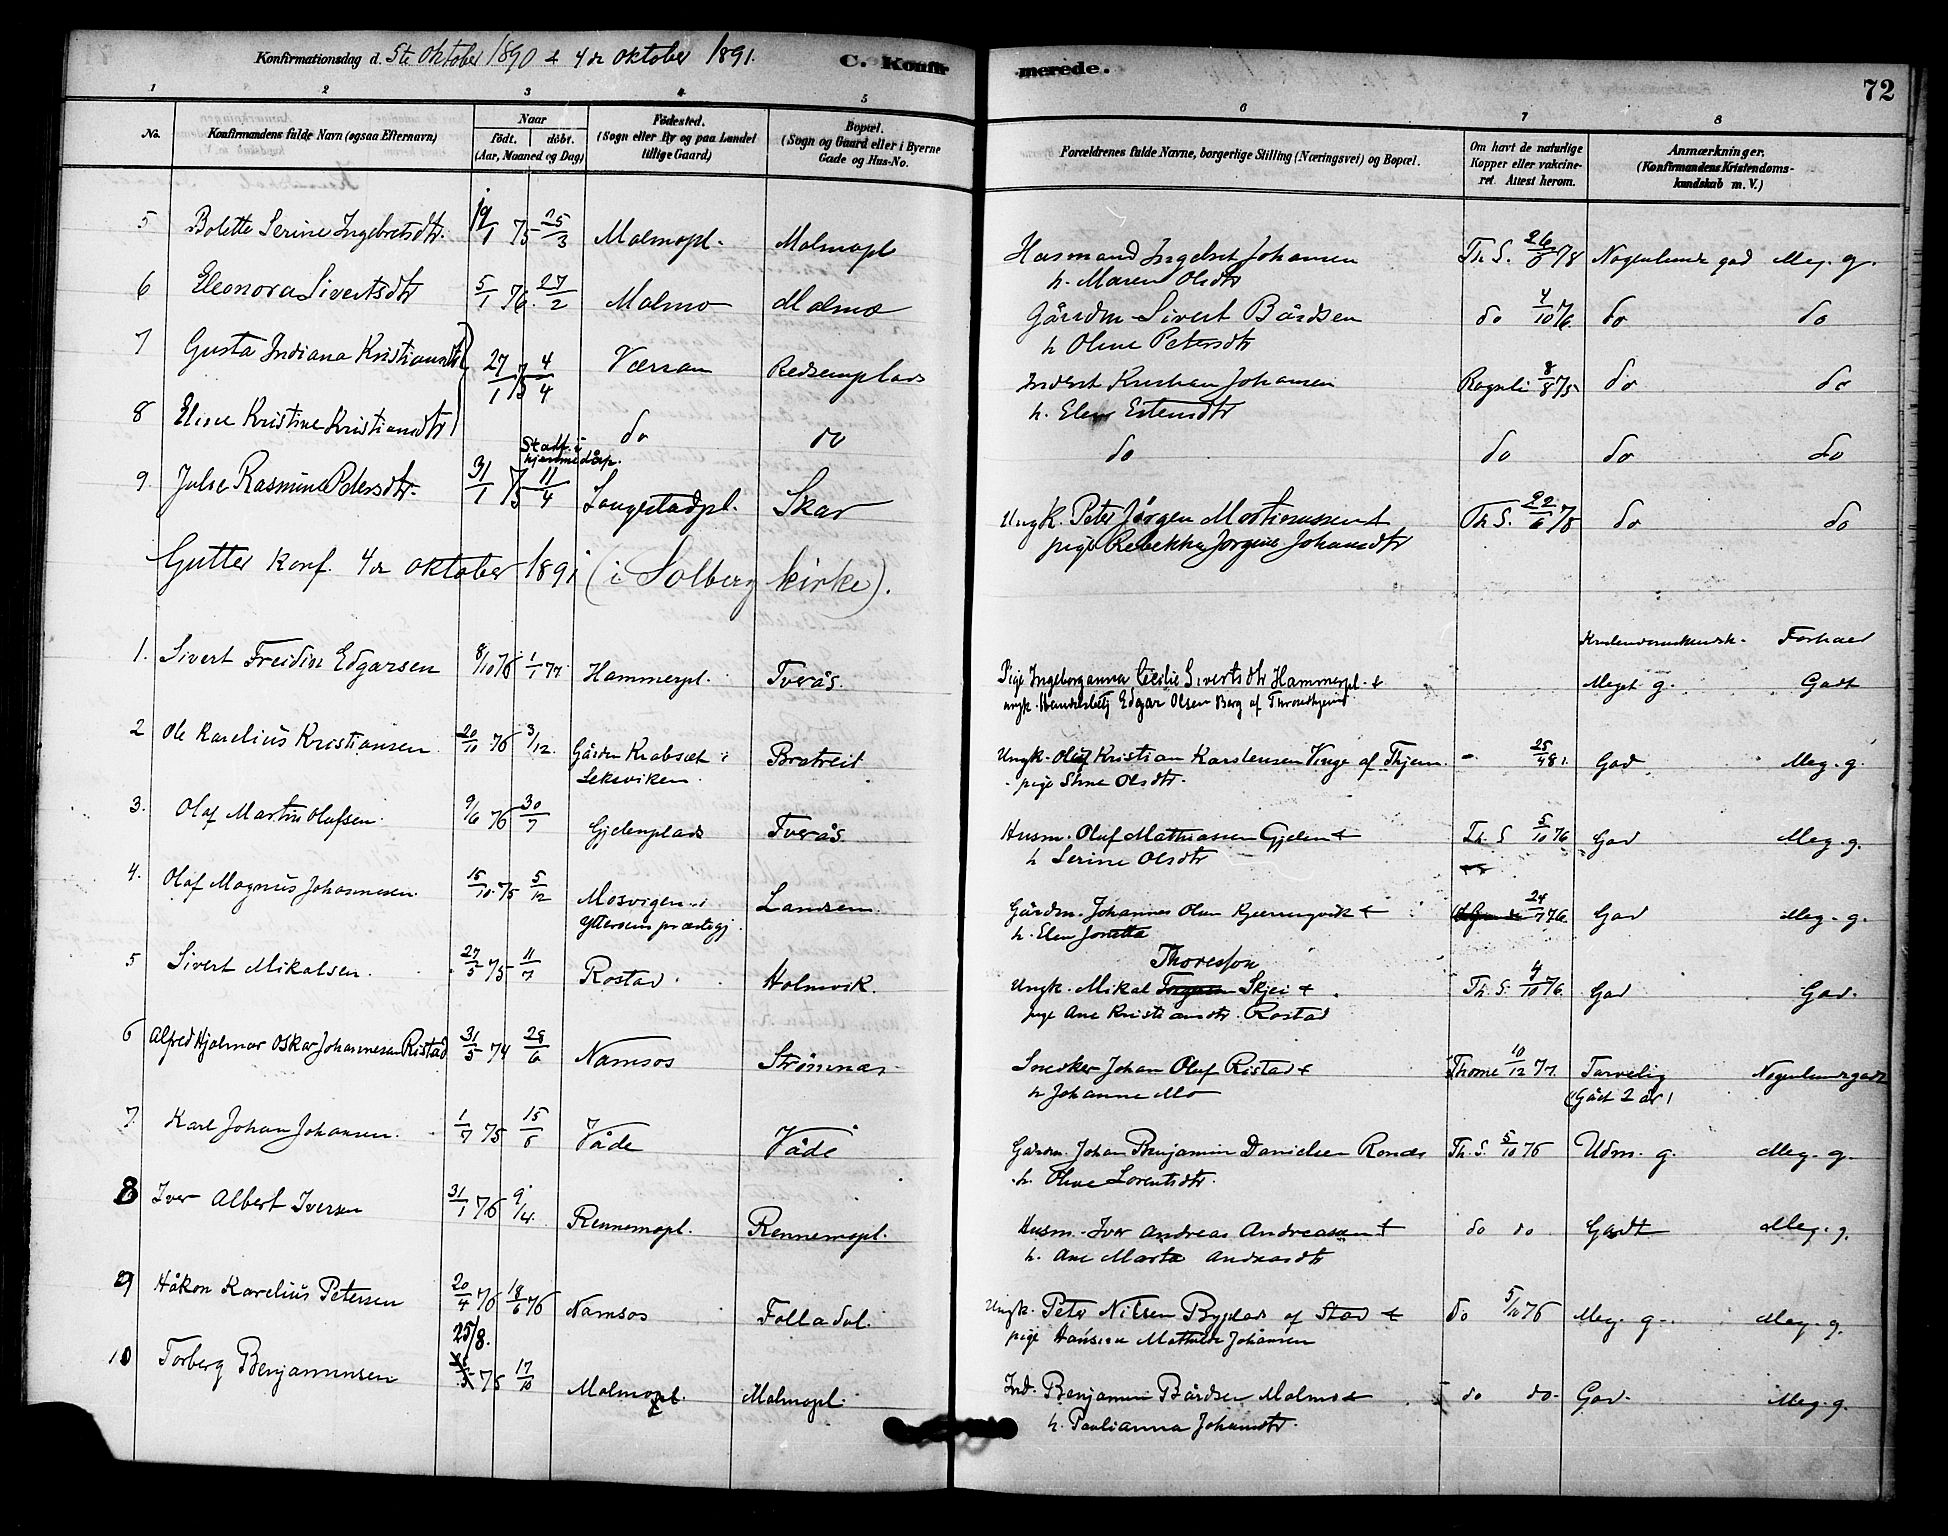 Konfirmationsdag d. 5te Oktober 1890 & 4de Oktober 1891. C. Konfirmerede. 72
1 2 3 4 5 6 7 8
No. Konfirmandens fulde Navn (ogsaa Efternavn) Naar født. døbt. (Aar, Maaned og Dag) Fødested. (Sogn eller By og paa Landet tillige Gaard) Bopæl. (Sogn og Gaard eller i Byerne Gade og Hus-No. Forældrenes fulde Navne, borgerlige Stilling (Næringsvei) og Bopæl. Om havt de naturlige Kopper eller vakcineret. Attest herom. Anmærkninger. (Konfirmandens Kristendomskundskab m. V.)
5 Bolette Serine Ingebretsdtr. 19/1 75 25/3 Malmopl. Malmopl Husmand Ingebret Johansen Th. S. 78 Nogenlunde god Meg. g.
h. Maren Olsdtr
6 Eleonora Sivertsdtr 5/1 76. 27/2 Malmo Malmo Gårdm Sivert Bårdsen do 4/10 76. do do
h Oline Petersdtr
7 Gusta Indiana Kristiansdtr 27/1 75 4/4 Værran Redsemplads Inderst Kristian Johansen 8/8 75 do do
h. Elen Estensdtr
8 Elise Kristine Kristiansdtr do do do do do do
9 Julie Rasmine Petersdtr. 31/1 75 Stadf. i hjemmedåp. 11/4 Langstadpl. Skar Ungk. Peter Jørgen Martinussen & Th. S. 22/6 78 do do
pige Rebekka Jørgine Johansdtr
Gutter Konf. 4de oktober 1891 (i Solberg kirke).
Forhold
1. Sivert Freidin Edgarsen 8/10 76 1/1 77 Hammerpl. Tverås. Pige Ingeborganna Cecilie Sivertsdtr Hammerpl. & Meget g. Godt
ungk. Handelsbetj Edgar Olsen Berg af Throndhjem
2 Ole Karelius Kristiansen 20/10 76 3/12. Gården Krabsæt i Leksviken. Bratreit Ungk. Oluf Kristian Karstensen Vinge af Thjem - 25/4 81 God Meg. g.
pige Stine Olsdtr.
3. Olaf Martin Olufsen. 9/6 76 30/7 Gjelenplads Tverås. Husm. Oluf Mathiassen Gjelen & Th. S 5/10 76 God Meg. g.
h Serine Olsdtr
4. Olaf Magnus Johannesen. 15/10. 75 5/12 Mosvigen i Ytterøens præstegj. Landsem. Gårdm. Johannes Olsen Kjerringvik & 24/7 76. God Meg. g.
h. Elen Jonetta
5 Sivert Mikalsen. 27/5 75 11/7 Rostad. Holmvik. Ungk. Mikal Thoresson Skjei & Th. S. 4/10 76. God God.
pige Ane Kristiansdtr. Rostad
6 Alfred Hjalmar Oskar Johannesen Ristad 31/5 74 28/6 Namsos Strømnæs Snedker Johan Oluf Ristad & Thome 10/12 77. Tarvelig (Gået 2 år) Nogenlunde godt
h Johanne Mo
7. Karl Johan Johansen. 1/7 75 15/8 Våde Våde Gårdm. Johan Benjamin Danielsen Th. S. 5/10 76 Udm. g. Meg. g.
h. Oline Lorentsdtr.
8 Iver Albert Iversen 31/1 76 9/4. Rennemopl. Rennemopl. Husm. Iver Andreas Andreassen & do do Godt Meg. g.
h. Ane Marta Andreasdtr
9 Håkon Karelius Petersen 20/4 76 18/6 76 Namsos Folladal. Ungk. Peter Nilsen af Stod & do 5/10 76 Meg. g. Meg. g.
pige Hansine Mathilde Johansen
10 Torberg Benjaminsen 25/8. 75 17/10 Malmopl. Malmopl. Ind. Benjamin Bårdsen Malmo & do do God. Meg. g.
h. Paulianna Johansdtr.